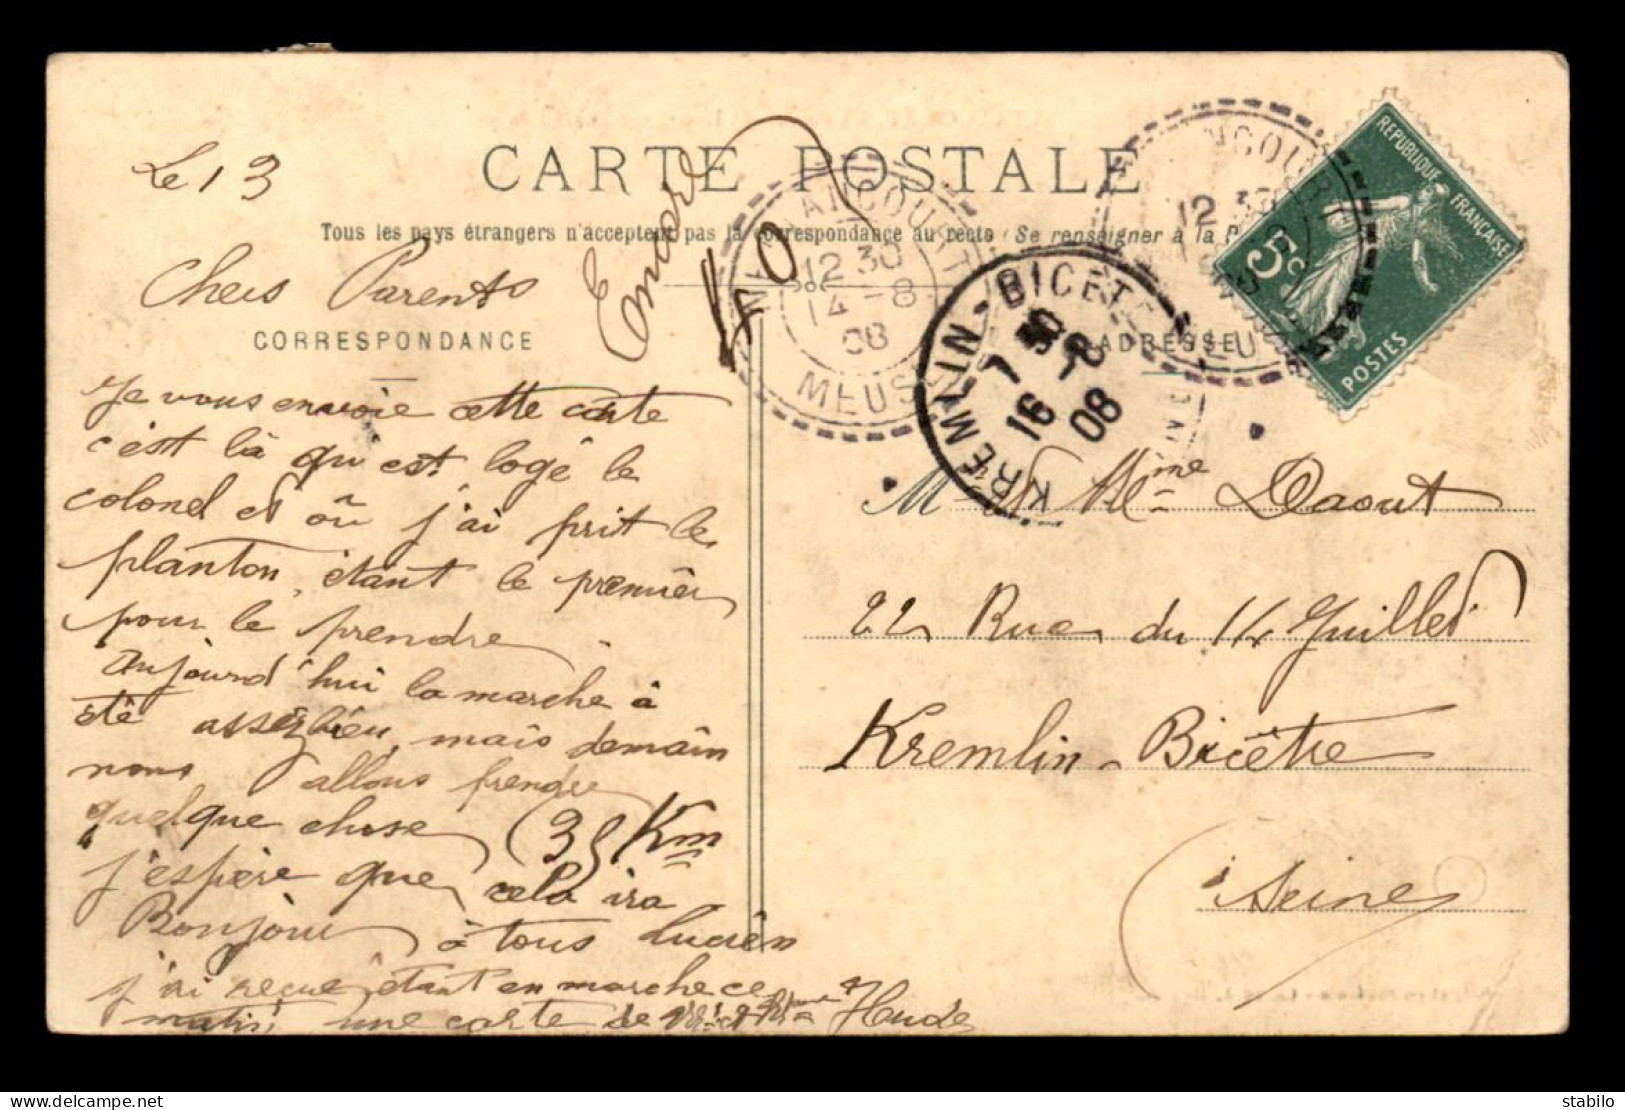 CARTE POSTALE
Tous les pays étrangers n'acceptent pas la correspondance au recto (Se renseigner à la P
CORRESPONDANCE
ADRESSE
Le 13
Chers Parents
Je vous envoie cette carte
c'est là qu'est logé le
colonel et où j'ai prit le
planton, étant le premier
pour le prendre
Aujourd'hui la marche à
été assez bien, mais demain
nous allons prendre
quelque chose (35 Km
j'espère que cela ira
Bonjour à tous Lucien
j'ai reçue étant en marche ce
matin une carte de Mr et Mme Hude
40
12 30
14-8
08
MEUSE
NCOURT
12 30
REPUBLIQUE FRANÇAISE
5c
POSTES
KREMLIN-BICETRE
7 30
16-8
08
M. et Mme Daout
22 Rue du 14 Juillet
Kremlin-Bicêtre
Seine
stabilo
delcampe.net